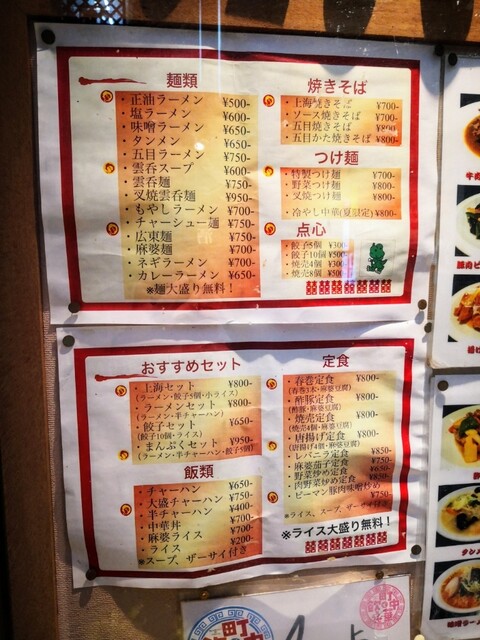 麺類
・正油ラーメン ¥500-
・塩ラーメン ¥600-
・味噌ラーメン ¥650-
・タンメン ¥650-
・五目ラーメン ¥750-
・雲呑スープ ¥600-
・雲呑麺 ¥750-
・叉焼雲呑麺 ¥950-
・もやしラーメン ¥700-
・チャーシュー麺 ¥750-
・広東麺 ¥750-
・麻婆麺 ¥700-
・ネギラーメン ¥700-
・カレーラーメン ¥650-
※麺大盛り無料！
焼きそば
・上海焼きそば ¥700-
・ソース焼きそば ¥700-
・五目焼きそば ¥800-
・五目かた焼きそば ¥800-
つけ麺
・特製つけ麺 ¥700-
・野菜つけ麺 ¥800-
・叉焼つけ麺 ¥800-
・冷やし中華(夏限定) ¥800-
点心
・餃子5個 ¥300-
・餃子10個 ¥500-
・焼売4個 ¥300-
・焼売8個 ¥500-
おすすめセット
・上海セット ¥800-
(ラーメン・餃子5個・小ライス)
・ラーメンセット ¥800-
(ラーメン・半チャーハン)
・餃子セット ¥650-
(餃子10個・ライス)
・まんぷくセット ¥950-
(ラーメン・半チャーハン・餃子5個)
飯類
・チャーハン ¥650-
・大盛チャーハン ¥750-
・半チャーハン ¥400-
・中華丼 ¥700-
・麻婆ライス ¥700-
・ライス ¥200-
※スープ、ザーサイ付き
定食
・春巻定食 ¥800-
(春巻3本・麻婆豆腐)
・酢豚定食 ¥800-
(酢豚・麻婆豆腐)
・焼売定食 ¥800-
(焼売4個・麻婆豆腐)
・唐揚げ定食 ¥800-
(唐揚げ4個・麻婆豆腐)
・レバニラ定食 ¥750-
・麻婆茄子定食 ¥750-
・野菜炒め定食 ¥650-
・肉野菜炒め定食 ¥850-
・ピーマン豚肉味噌炒め ¥750-
※ライス、スープ、ザーサイ付き
※ライス大盛り無料！
町中